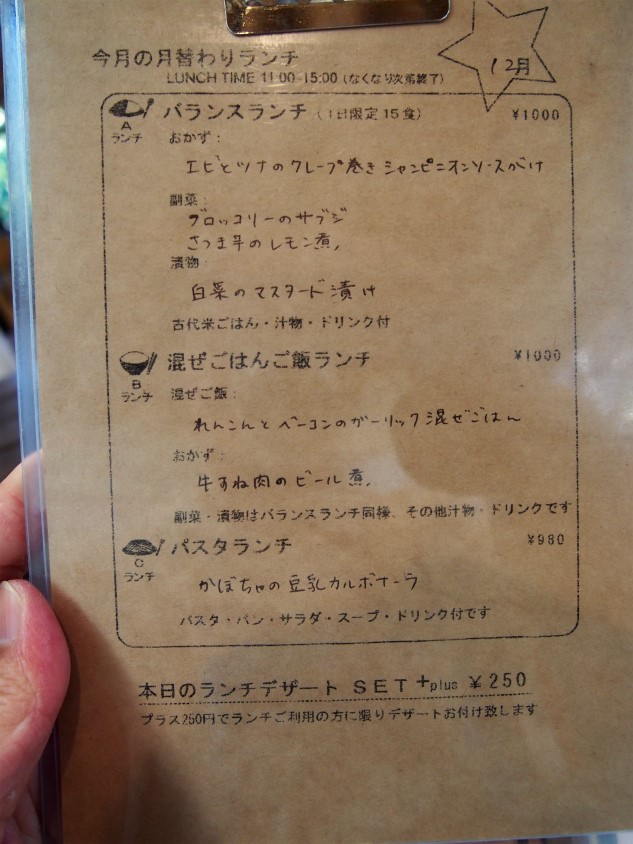 12月
今月の月替わりランチ
LUNCH TIME 11:00-15:00 (なくなり次第終了)
A ランチ
バランスランチ (1日限定15食) ¥1000
おかず:
エビとツナのクレープ巻きシャンピニオンソースがけ
副菜:
ブロッコリーのサブジ
さつま芋のレモン煮,
漬物:
白菜のマスタード漬け
古代米ごはん・汁物・ドリンク付
B ランチ
混ぜごはんご飯ランチ ¥1000
混ぜご飯:
れんこんとベーコンのガーリック混ぜごはん
おかず:
牛すね肉のビール煮,
副菜・漬物はバランスランチ同様、その他汁物・ドリンクです
C ランチ
パスタランチ ¥980
かぼちゃの豆乳カルボナーラ
パスタ・パン・サラダ・スープ・ドリンク付です
本日のランチデザート SET +plus ¥250
プラス250円でランチご利用の方に限りデザートお付け致します